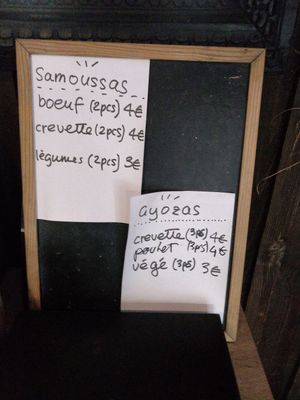 Samoussas
boeuf (2pcs) 4€
crevette (2pcs) 4€
légumes (2pcs) 3€
gyozas
crevette (3ps) 4€
poulet (3ps) 4€
végé (3ps) 3€